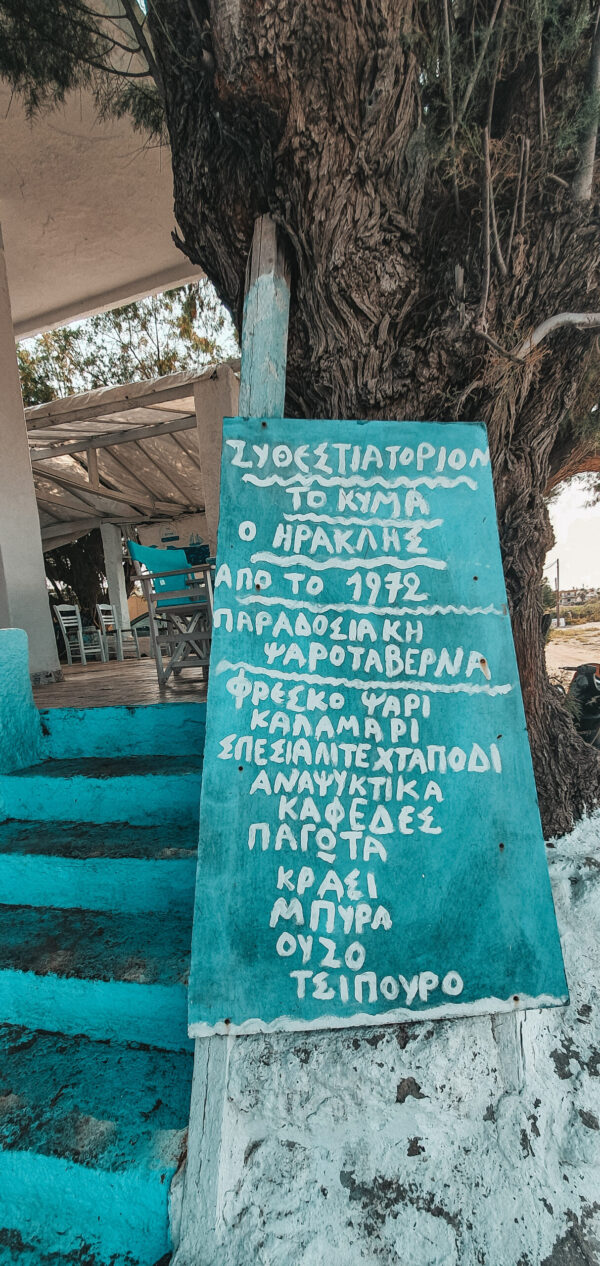 ΖΥΘΕΣΤΙΑΤΟΡΙΟΝ
ΤΟ ΚΥΜΑ
Ο ΗΡΑΚΛΗΣ
ΑΠΟ ΤΟ 1972
ΠΑΡΑΔΟΣΙΑΚΗ
ΨΑΡΟΤΑΒΕΡΝΑ
ΦΡΕΣΚΟ ΨΑΡΙ
ΚΑΛΑΜΑΡΙ
ΣΠΕΣΙΑΛΙΤΕ ΧΤΑΠΟΔΙ
ΑΝΑΨΥΚΤΙΚΑ
ΚΑΦΕΔΕΣ
ΠΑΓΩΤΑ
ΚΡΑΣΙ
ΜΠΥΡΑ
ΟΥΖΟ
ΤΣΙΠΟΥΡΟ